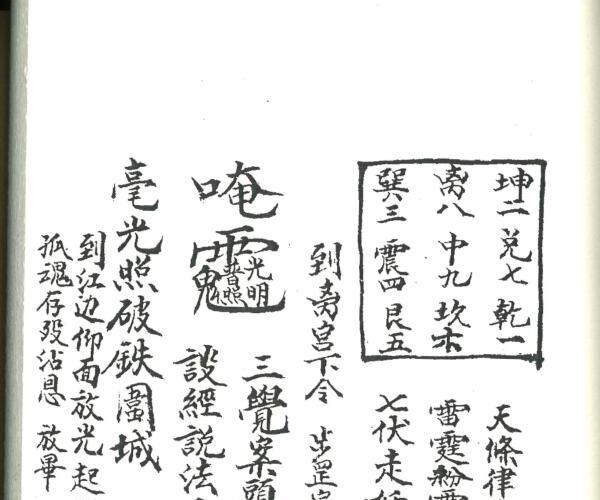 坤二 兌七 乾一
离八 中九 坎六
巽三 震四 艮五
天條律
雷霆紛
七伏走
到离宮下令 步罡
三覺案頭
唵 光明普照
設經説法
毫光照破鉄圍城
到江边仰面放光起
孤魂存殁沾恩 放畢